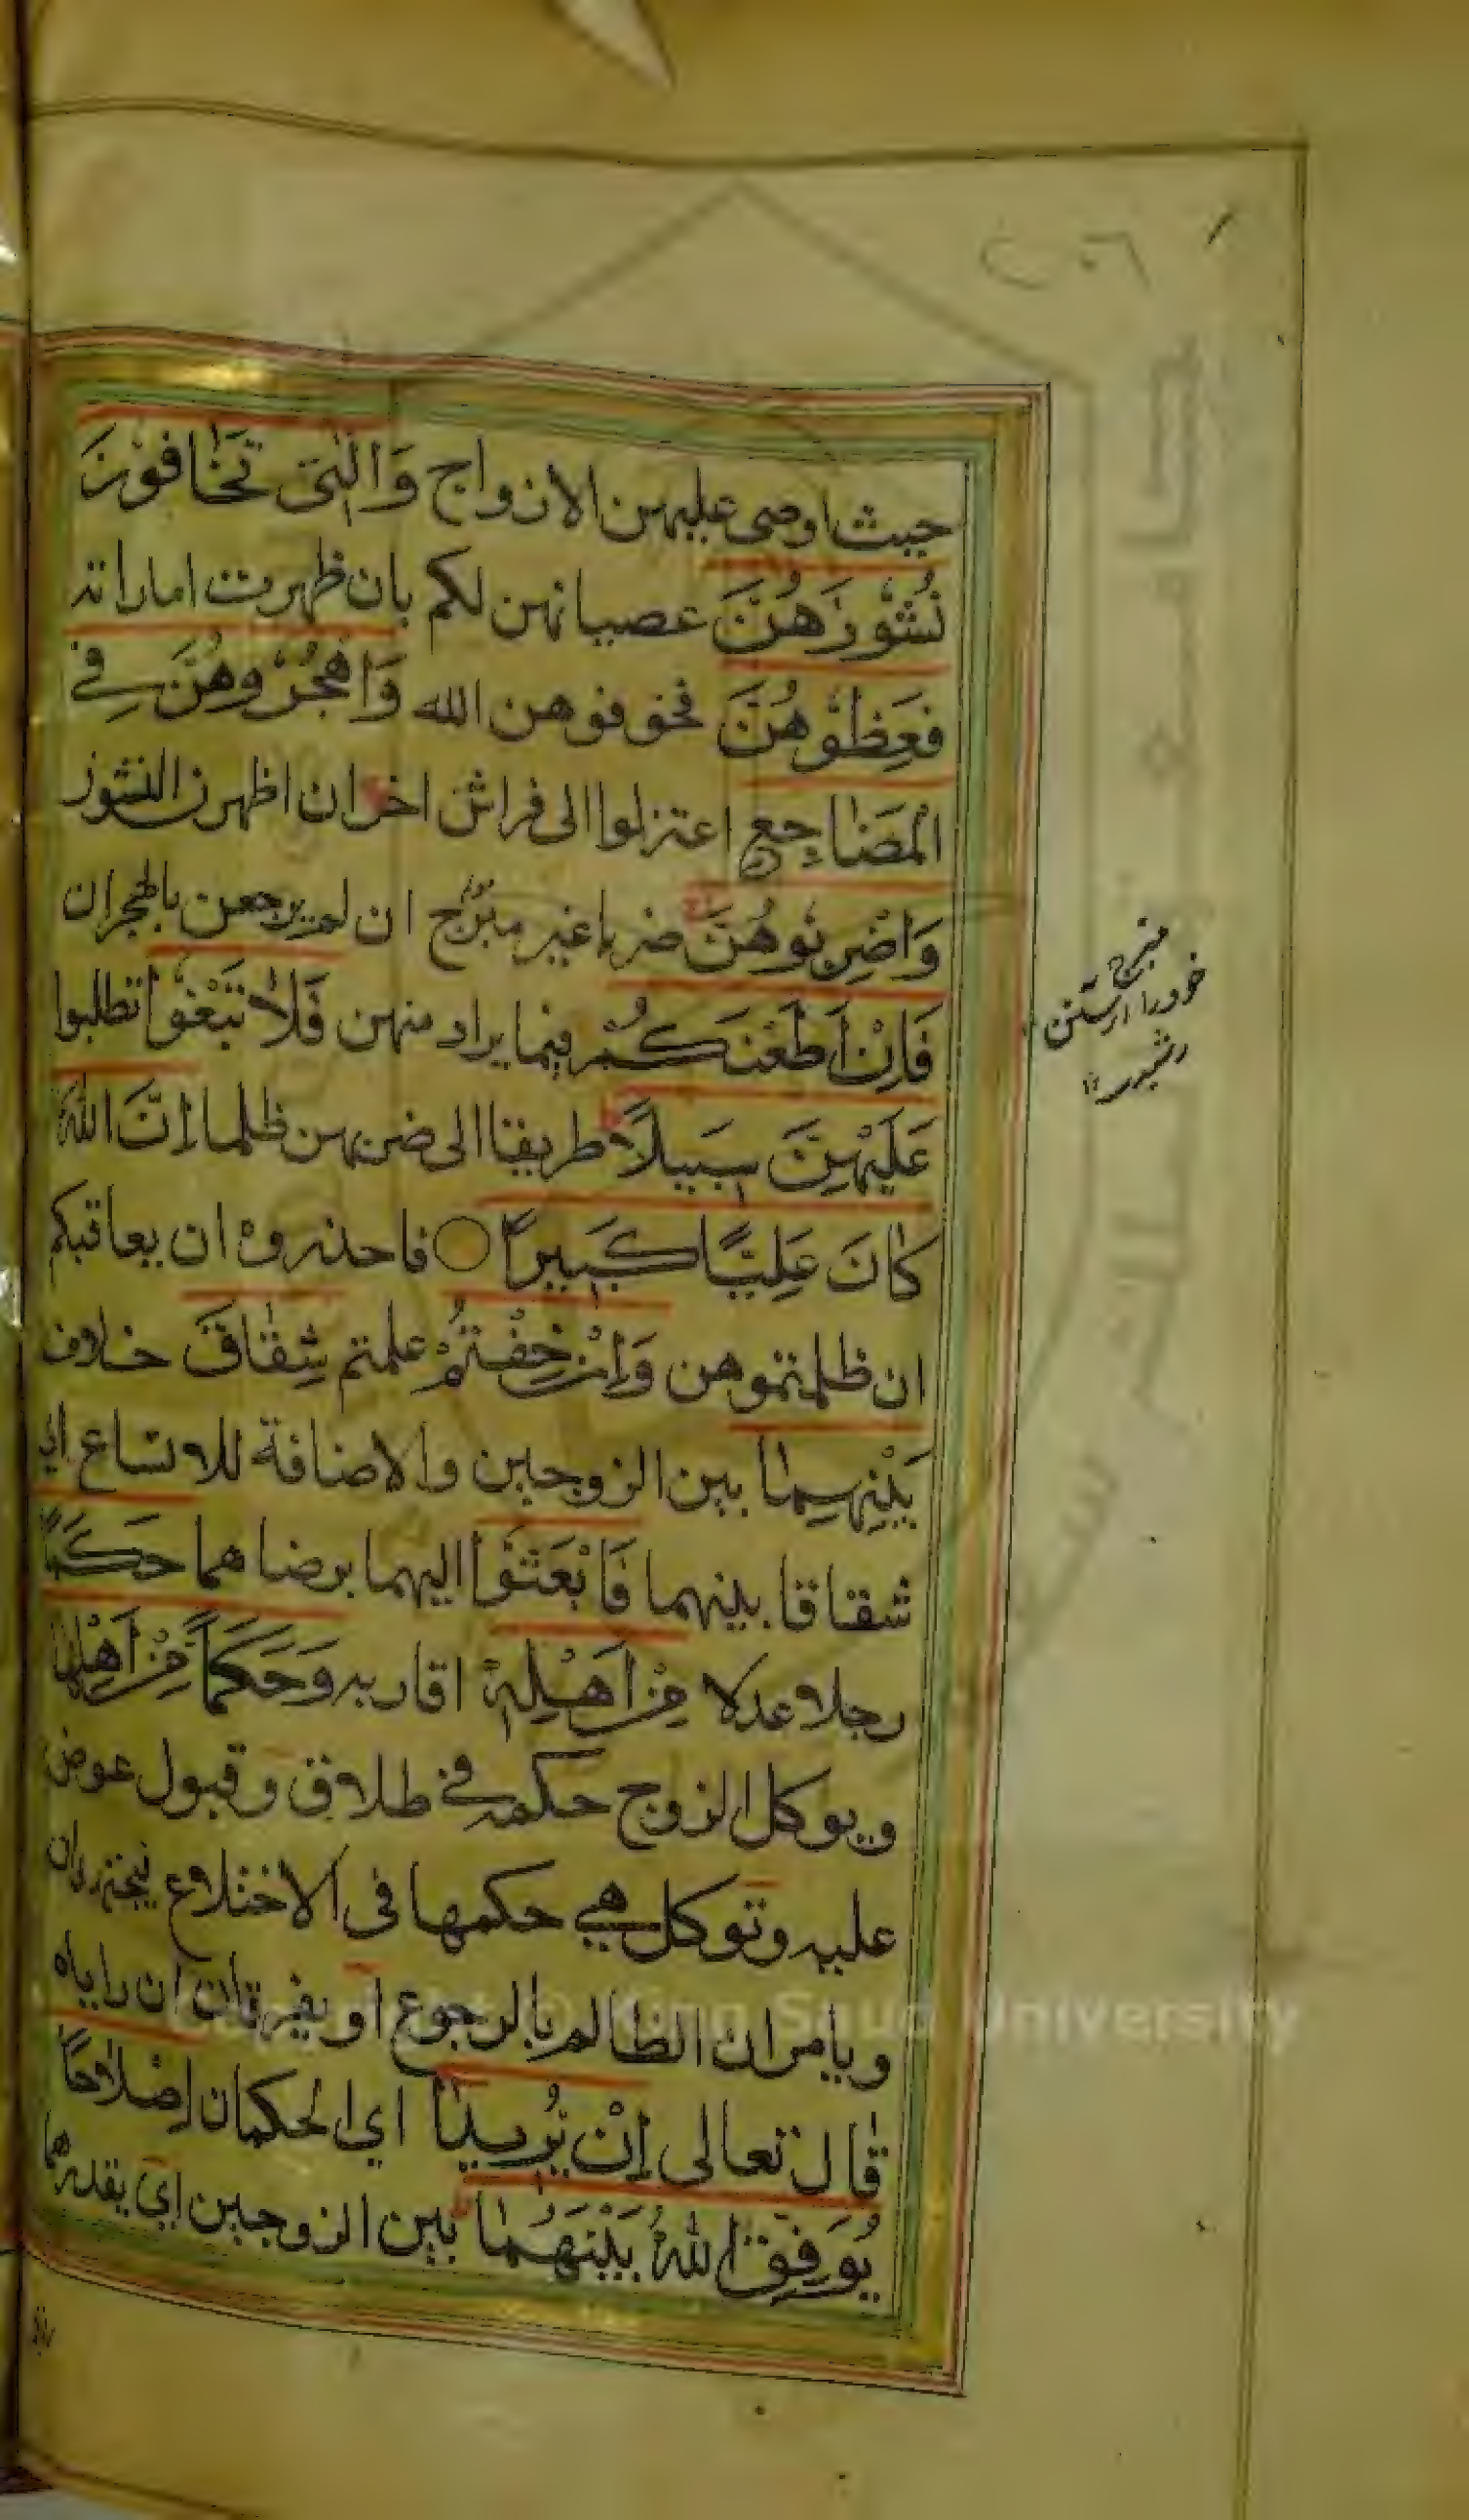 ٢٠٦
حيث اوصى عليهن الازواج وَالّٰتِى تَخَافُوْنَ
نُشُوْزَهُنَّ عصيانهن لكم بان ظهرت اماراته
فَعِظُوْهُنَّ فخوفوهن الله وَاهْجُرُوْهُنَّ فِي
الْمَضَاجِعِ اعتزلوا الى فراش اخر ان اظهرن النشوز
وَاضْرِبُوهُنَّ ضربا غير مبرح ان لم يرجعن بالهجران
فَاِنْ اَطَعْنَكُمْ فيما يراد منهن فَلَا تَبْغُوْا تطلبوا
عَلَيْهِنَّ سَبِيلًا طريقا الى ضربهن ظلما اِنَّ اللّٰهَ
كَانَ عَلِيًّا كَبِيرًا فاحذروه ان يعاقبكم
ان ظلمتموهن وَاِنْ خِفْتُمْ علمتم شِقَاقَ خلاف
بَيْنِهِمَا بين الزوجين والاضافة للاتساع اي
شقاقا بينهما فَابْعَثُوْا اليهما برضاهما حَكَمًا
رجلا عدلا مِنْ اَهْلِهٖ اقاربه وَحَكَمًا مِنْ اَهْلِهَا
ويوكل الزوج حكمه في طلاق وقبول عوض
عليه وتوكل هي حكمها فى الاختلاع فيجتهدان
ويامران الظالم بالرجوع او يفرقان ان راياه
قال تعالى اِنْ يُرِيدَا اي الحكمان اِصْلَاحًا
يُوَفِّقِ اللّٰهُ بَيْنَهُمَا بين الزوجين اي يقدرهما
مبرح
© King Saud University